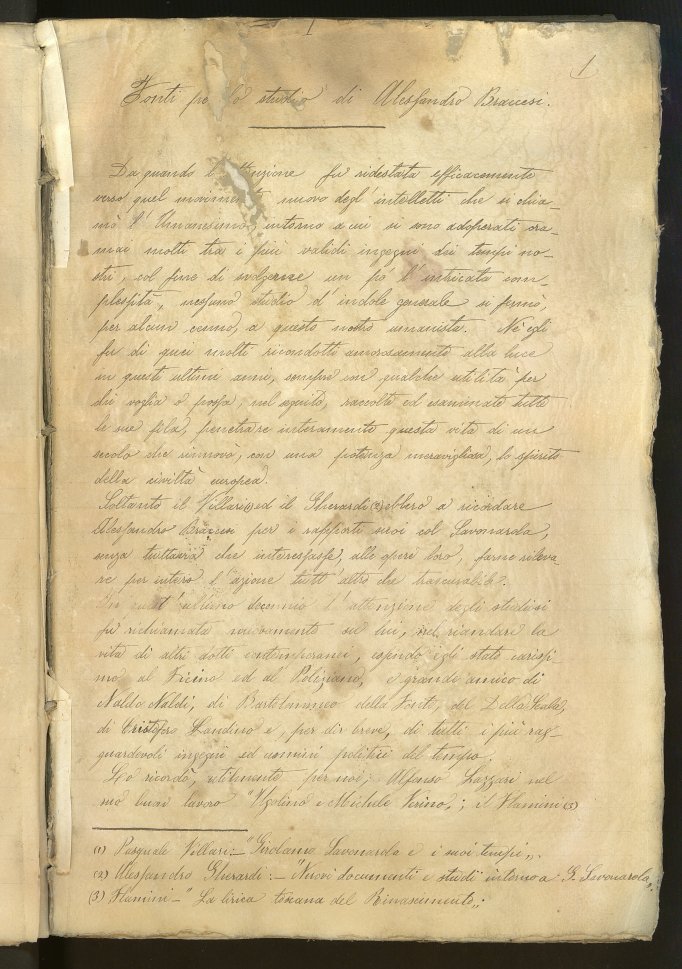 1
Fonti pe lo studio di Alessandro Braccesi.
Da quando l' ttenzione fu ridestata efficacemente
verso quel moviment nuovo degl' intelletti che si chia-
mò l' Umanesimo, intorno a cui si sono adoperati ora-
mai molti tra i più validi ingegni dei tempi no-
stri, col fine di svolgerne un po' l' intricata com-
plessità, nessuno studio d' indole generale si fermò,
per alcun cenno, a questo nostro umanista. Nè egli
fu di quei molti ricondotti amorosamente alla luce
in questi ultimi anni, sempre con qualche utilità per
chi voglia o possa, nel seguito, raccolte ed esaminate tutte
le sue fila, penetrare interamente questa vita di un
secolo che rinnovò, con una potenza meravigliosa, lo spirito
della civiltà europea.
Soltanto il Villari (1) ed il Gherardi (2) ebbero a ricordare
Alessandro Braccesi per i rapporti suoi col Savonarola,
senza tuttavia che interessasse, alle opere loro, farne rileva-
re per intero l' azione tutt' altro che trascurabile.
In quest' ultimo decennio l' attenzione degli studiosi
fu richiamata nuovamente su lui, nel riandare la
vita di altri dotti contemporanei, essendo egli stato carissi-
mo al Ficino ed al Poliziano, e grande amico di
Naldo Naldi, di Bartolommeo della Fonte, del Della Scala,
di Cristoforo Landino e, per dir breve, di tutti i più rag-
guardevoli ingegni ed uomini politici del tempo.
Lo ricordò, utilmente per noi, Alfonso Lazzari nel
suo buon lavoro "Ugolino e Michele Verino,; il Flamini (3)
(1) Pasquale Villari:_ "Girolamo Savonarola e i suoi tempi,,.
(2) Alessandro Gherardi:_ "Nuovi documenti e studi intorno a G. Savonarola,,
(3) Flamini _ "La lirica toscana del Rinascimento,,